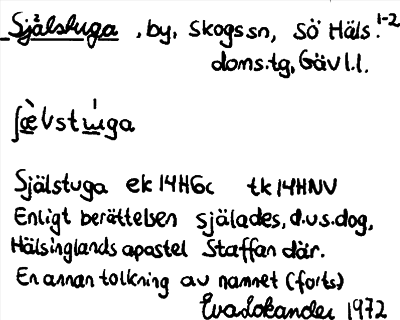 Själstuga, by, Skogs sn, Sö Häls. 1-2
doms.tg, Gävl.l.
ʃæ̀lstɯ́ga
Själstuga ek 14HGc tk 14HNV
Enligt berättelsen själades, d.v.s. dog,
Hälsinglands apostel Staffan där.
En annan tolkning av namnet (forts)
Eva Lokander 1972